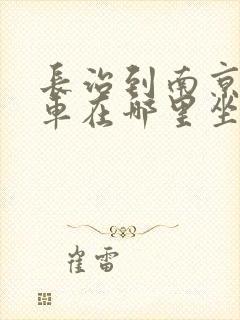 長治到南京
車在哪里坐
崔雷